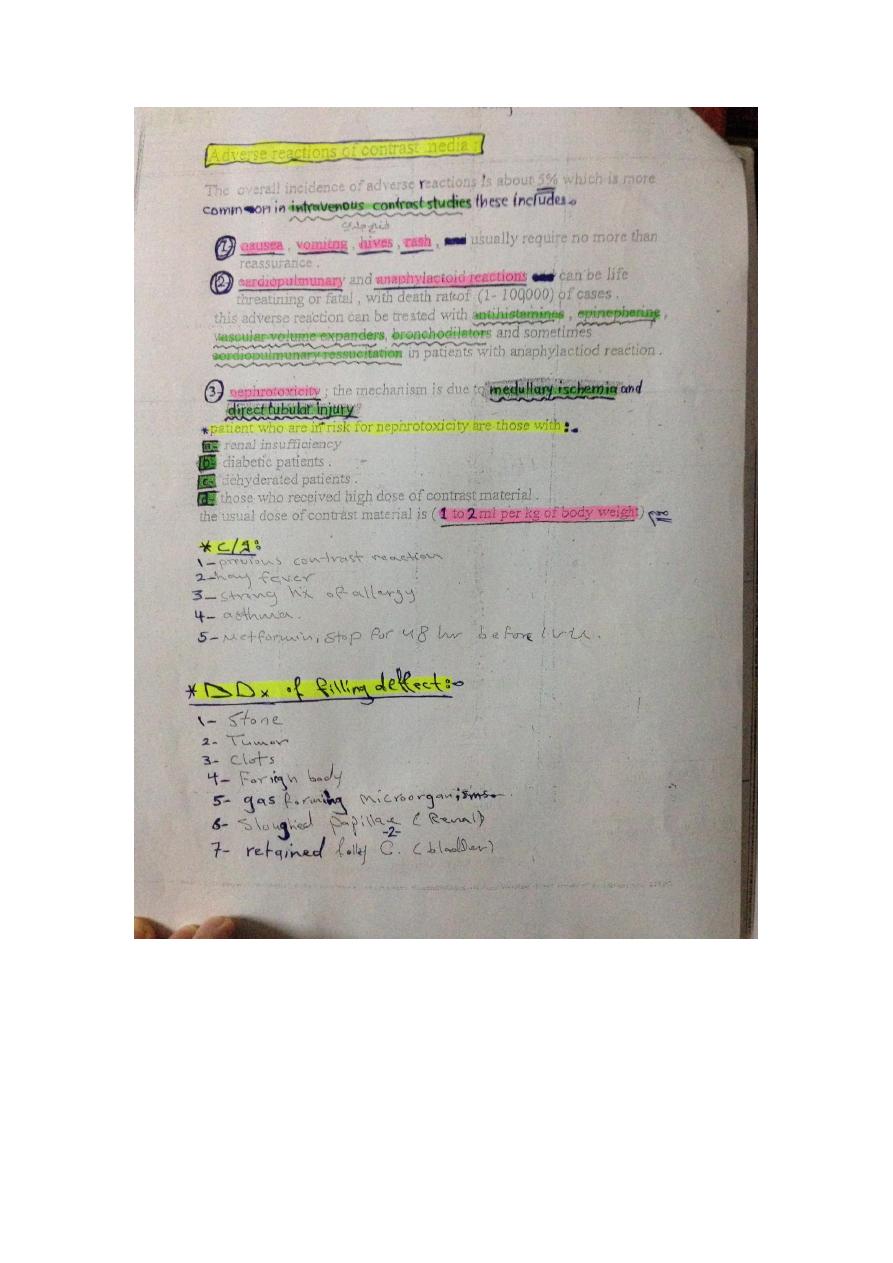 Adverse reactions of contrast media :
The overall incidence of adverse reactions is about 5% which is more
common in intravenous contrast studies these includes
1- nausea , vomitng , hives , rash , usually require no more than
reassurance .
2- cardiopulmunary and anaphylactoid reactions can be life
threatining or fatal , with death rate of (1- 100000) of cases .
this adverse reaction can be treated with antihistamines , epinephering ,
vascular volume expanders, bronchodilators and sometimes
cordiopulmunary ressucitation in patients with anaphylactiod reaction .
3- nephrotoxicity ; the mechanism is due to medullary ischemia and
direct tubular injury
*patient who are in risk for nephrotoxicity are those with :-
a- renal insufficiency
b- diabetic patients .
c- dehyderated patients .
d- those who received high dose of contrast material .
the usual dose of contrast material is ( 1 to 2 ml per kg of body weight )
* C/I:
1- previous contrast reaction
2- hay fever
3- strong hx of allergy
4- asthma.
5- Metformin, stop for 48 hr before I.V.U.
* DDx of filling deffect:-
1- Stone
2- Tumor
3- Clots
4- Forign body
5- gas forming microorganisms.
6- Sloughed papillae (Renal)
-2-
7- retained folly C. (bladder)